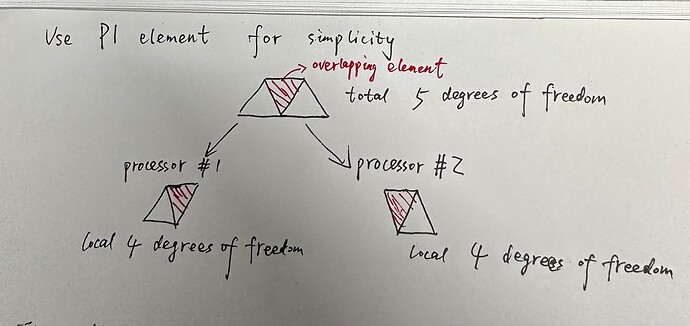 Use P1 element for simplicity
overlapping element
total 5 degrees of freedom
processor #1
processor #2
local 4 degrees of freedom
local 4 degrees of freedom